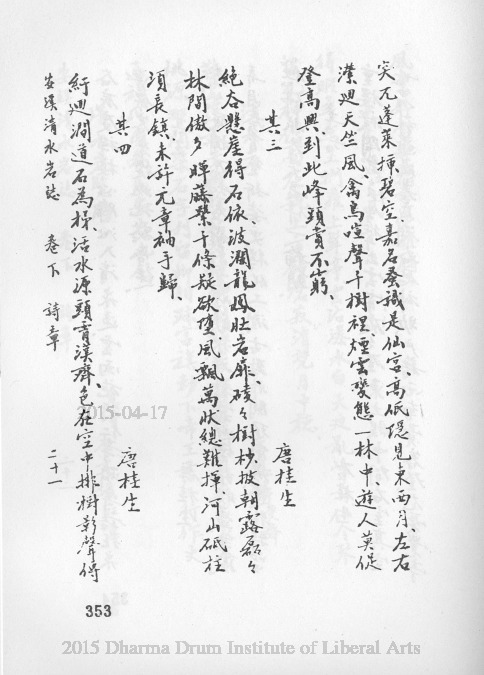 突兀蓬萊揷碧空、嘉名叠識是仙宮、高低隱見東西月、左右
瀠迴天竺風、禽鳥喧聲千樹裡、煙雲變態一林中、遊人莫促
登高興、到此峰頭賞不窮、
其三 唐桂生
絕谷懸崖得石依、波瀾龍鳳壯岩扉、磋々樹杪披朝露、磊々
林間傲夕暉、藤繫千條疑欲墮、風飄萬狀總難揮、河山砥柱
須長鎮、未許元章袖手歸、
其四 唐桂生
紆迴澗道石為梯、活水源頭看漢齊、色在空中排樹影、聲傳
安溪清水岩誌 卷下 詩章 二十一
353
2015-04-17
2015 Dharma Drum Institute of Liberal Arts